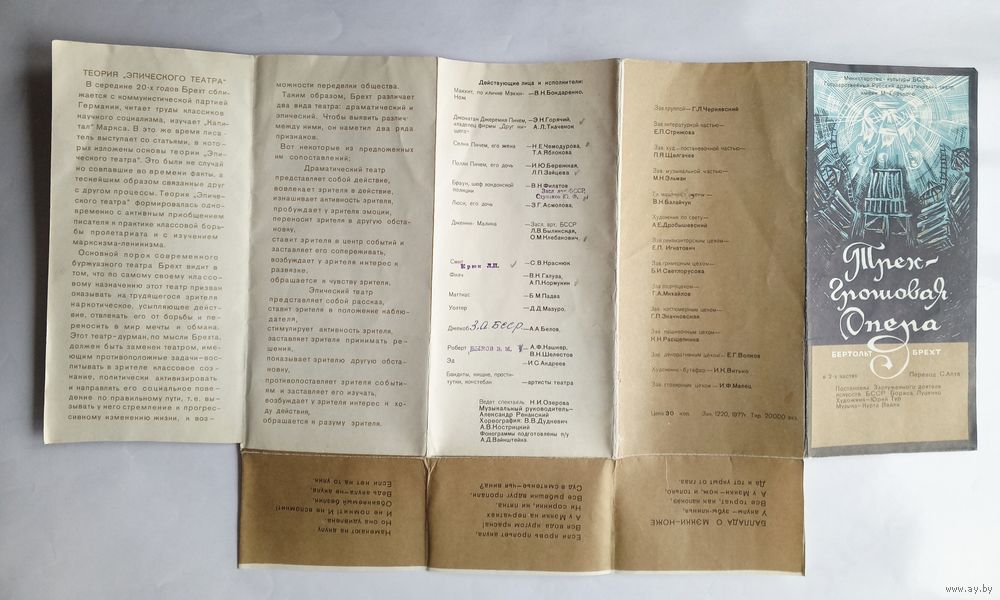 ТЕОРИЯ „ЭПИЧЕСКОГО ТЕАТРА"
В середине 20-х годов Брехт сбли-
жается с коммунистической партией
Германии, читает труды классиков
научного социализма, изучает „Капи-
тал" Маркса. В это же время писа-
тель выступает со статьями, в кото-
рых изложены основы теории „Эпи-
ческого театра". Это были не случай-
но совпавшие во времени факты, а
теснейшим образом связанные друг
с другом процессы. Теория „Эпиче-
ского театра" формировалась одно-
временно с активным приобщением
писателя к практике классовой борь-
бы пролетариата и с изучением
марксизма-ленинизма.
Основной порок современного
буржуазного театра Брехт видит в
том, что по самому своему классо-
вому назначению этот театр призван
оказывать на трудящегося зрителя
наркотическое, усыпляющее дейст-
вие, отвлекать его от борьбы и пе-
реносить в мир мечты и обмана.
Этот театр-дурман, по мысли Брехта,
должен быть заменен театром, име-
ющим противоположные задачи—вос-
питывать в зрителе классовое соз-
нание, политически активизировать
и направлять его социальное пове-
дение по правильному пути, т.е. вы-
зывать у него стремление к прогрес-
сивному изменению жизни, к воз-
можности переделки общества.
Таким образом, Брехт различает
два вида театра: драматический и
эпический. Чтобы выявить различ-
между ними, он наметил два ряда
признаков.
Вот некоторые из предложенных
им сопоставлений:
Драматический театр
представляет собой действие,
вовлекает зрителя в действие,
изнашивает активность зрителя,
пробуждает у зрителя эмоции,
переносит зрителя в другую обста-
новку,
ставит зрителя в центр событий и
заставляет его сопереживать,
возбуждает у зрителя интерес к
развязке.
обращается к чувству зрителя.
Эпический театр
представляет собой рассказ,
ставит зрителя в положение наблю-
дателя,
стимулирует активность зрителя,
заставляет зрителя принимать ре-
шения,
показывает зрителю другую обста-
новку,
противопоставляет зрителя событи-
ям и заставляет его изучать,
возбуждает у зрителя интерес к хо-
ду действия,
обращается к разуму зрителя.
Действующие лица и исполнители:
Макхит, по кличке Мэкки-—В.Н.Бондаренко.
Нож
Джонатан Джеремия Пичем,—Э.Н.Горячий,
владелец фирмы "Друг ни- А.Л.Ткаченок
щего"
Селиа Пичем, его жена —Н.Е.Чемодурова,
Т.А.Яблокова
Полли Пичем, его дочь —И.Ю.Бережная,
Л.П.Зайцева
Браун, шеф лондонской —В.Н.Филатов
полиции Засл арт. БССР.
Ступаков Ю. Ф.
Люси, его дочь —Э.Г.Асмолова.
Дженни- Малина —Засл. арт. БССР
Л.В.Былинская,
О.М.Клебанович
Смит —С.В.Краснюк
Крюк Л.П.
Филч —В.К.Галуза,
А.П.Кормунин
Маттиас —Б.М.Падва
Уолтер —Д.Д.Мазуро.
Джекоб З.А.БССР —А.А.Белов.
Роберт БЫКОВ В. М. —А.Ф.Кашкер,
В.Н.Шелестов
Эд —И.С.Андреев
Бандиты, нищие, прости-
тутки, констебли —артисты театра
Ведет спектакль Н.И.Озерова
Музыкальный руководитель—
Александр Ренанский
Хореография: В.В.Дудкевич
А.В.Кострицкий
Фонограммы подготовлены п/у
А.Д.Вайнштейна.
Зав.труппой—Г.Л.Чернявский
Зав.литературной частью—
Е.П.Стрижова
Зав. худ.- постановочной частью—
П.Я.Щелгачев
Зав. музыкальной частью—
М.Н.Эльман
В.Н.Балайчук
Художник по свету—
А.Е.Дробышевский
Зав.осветительским цехом—
Е.П. Игнатович
Зав.гримерным цехом—
Б.И.Светлорусова
Г.А.Михайлов
Зав. костюмерным цехом—
Г.П.Значковская
Зав. пошивочным цехом—
Н.Н.Расщепкина
Зав. декоративным цехом— Е.Г.Волков
Художник - бутафор— И.К.Витько
Зав. столярным цехом— И.Ф.Малец
Цена 30 коп. Зак. 1220, 1977г. Тир. 20000 экз.
Министерство культуры БССР
Государственный Русский драматический театр
Трех-
грошовая
Опера
БЕРТОЛЬТ БРЕХТ
в 2-х частях Перевод С.Апта
Постановка Заслуженного деятеля
искусств БССР Бориса Луценко
Художник—Юрий Тур
Музыка—Курта Вайля
БАЛЛАДА О МЭККИ-НОЖЕ
У акулы - зубы-клинья,
Все торчат, как напоказ,
А у Мэкки — нож и только,
Да и тот укрыт от глаз.
Если кровь прольет акула,
Вся вода кругом красна!
А у Мэкки на перчатках
Ни соринки, ни пятна.
Все рыбешки вдруг пропали.
Суд в смятенье- чья вина?
Намекают на акулу
Но она удивлена.
И не помнит! И не вспомнит!
Обвиняемый безлик.
Ведь акула-не акула,
Если нет на то улик.
www.ay.by